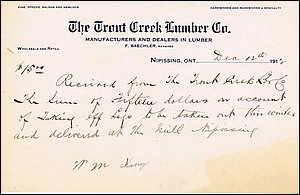 PINE, SPRUCE, BALSAM AND HEMLOCK
HARDWOODS AND BASSWOOD A SPECIALTY
The Trout Creek Lumber Co.
MANUFACTURERS AND DEALERS IN LUMBER
WHOLESALE AND RETAIL
F. BAECHLER, MANAGER
NIPISSING, ONT. Dec 12th 191
$15.00
Received from The Trout Creek Lbr Co
The Sum of Fifteen dollars on account
of Taking off Logs to be taken out this winter
and delivered at the Mill Nipissing
W M King